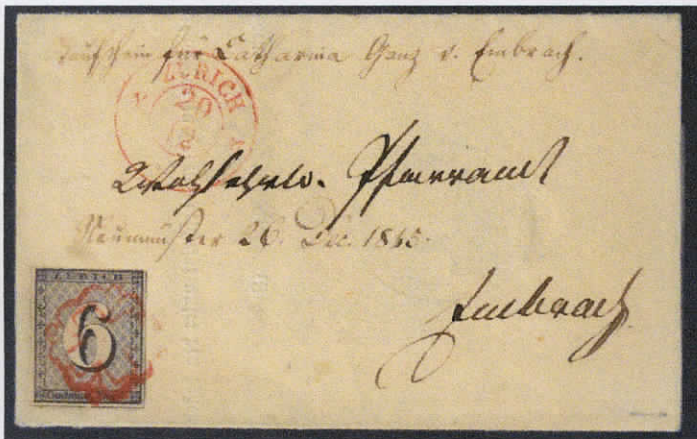 Taufschein für Catharina Ganz v. Embrach.
ZÜRICH
20
Wohlehrw. Pfarramt
Neumünster 26. Dec. 1845.
Embrach
ZÜRICH
6